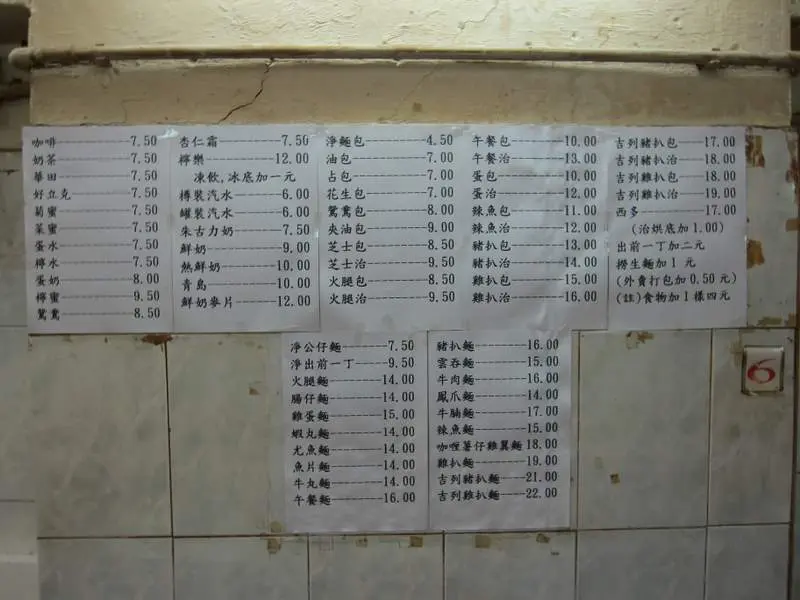 咖啡 7.50
奶茶 7.50
華田 7.50
好立克 7.50
菊蜜 7.50
菜蜜 7.50
蛋水 7.50
檸水 7.50
蛋奶 8.00
檸蜜 9.50
鴛鴦 8.50
杏仁霜 7.50
檸樂 12.00
凍飲,冰底加一元
樽裝汽水 6.00
罐裝汽水 6.00
朱古力奶 7.50
鮮奶 9.00
熱鮮奶 10.00
青島 10.00
鮮奶麥片 12.00
淨麵包 4.50
油包 7.00
占包 7.00
花生包 7.00
鴛鴦包 8.00
夾油包 9.00
芝士包 8.50
芝士治 9.50
火腿包 8.50
火腿治 9.50
午餐包 10.00
午餐治 13.00
蛋包 10.00
蛋治 12.00
辣魚包 11.00
辣魚治 12.00
豬扒包 13.00
豬扒治 14.00
雞扒包 15.00
雞扒治 16.00
吉列豬扒包 17.00
吉列豬扒治 18.00
吉列雞扒包 18.00
吉列雞扒治 19.00
西多 17.00
(治烘底加1.00)
出前一丁加二元
撈生麵加1 元
(外賣打包加0.50元)
(註)食物加1樣四元
淨公仔麵 7.50
淨出前一丁 9.50
火腿麵 14.00
腸仔麵 14.00
雞蛋麵 15.00
蝦丸麵 14.00
尤魚麵 14.00
魚片麵 14.00
牛丸麵 14.00
午餐麵 16.00
豬扒麵 16.00
雲吞麵 15.00
牛肉麵 16.00
鳳爪麵 14.00
牛腩麵 17.00
辣魚麵 15.00
咖喱薯仔雞翼麵 18.00
雞扒麵 19.00
吉列豬扒麵 21.00
吉列雞扒麵 22.00
6